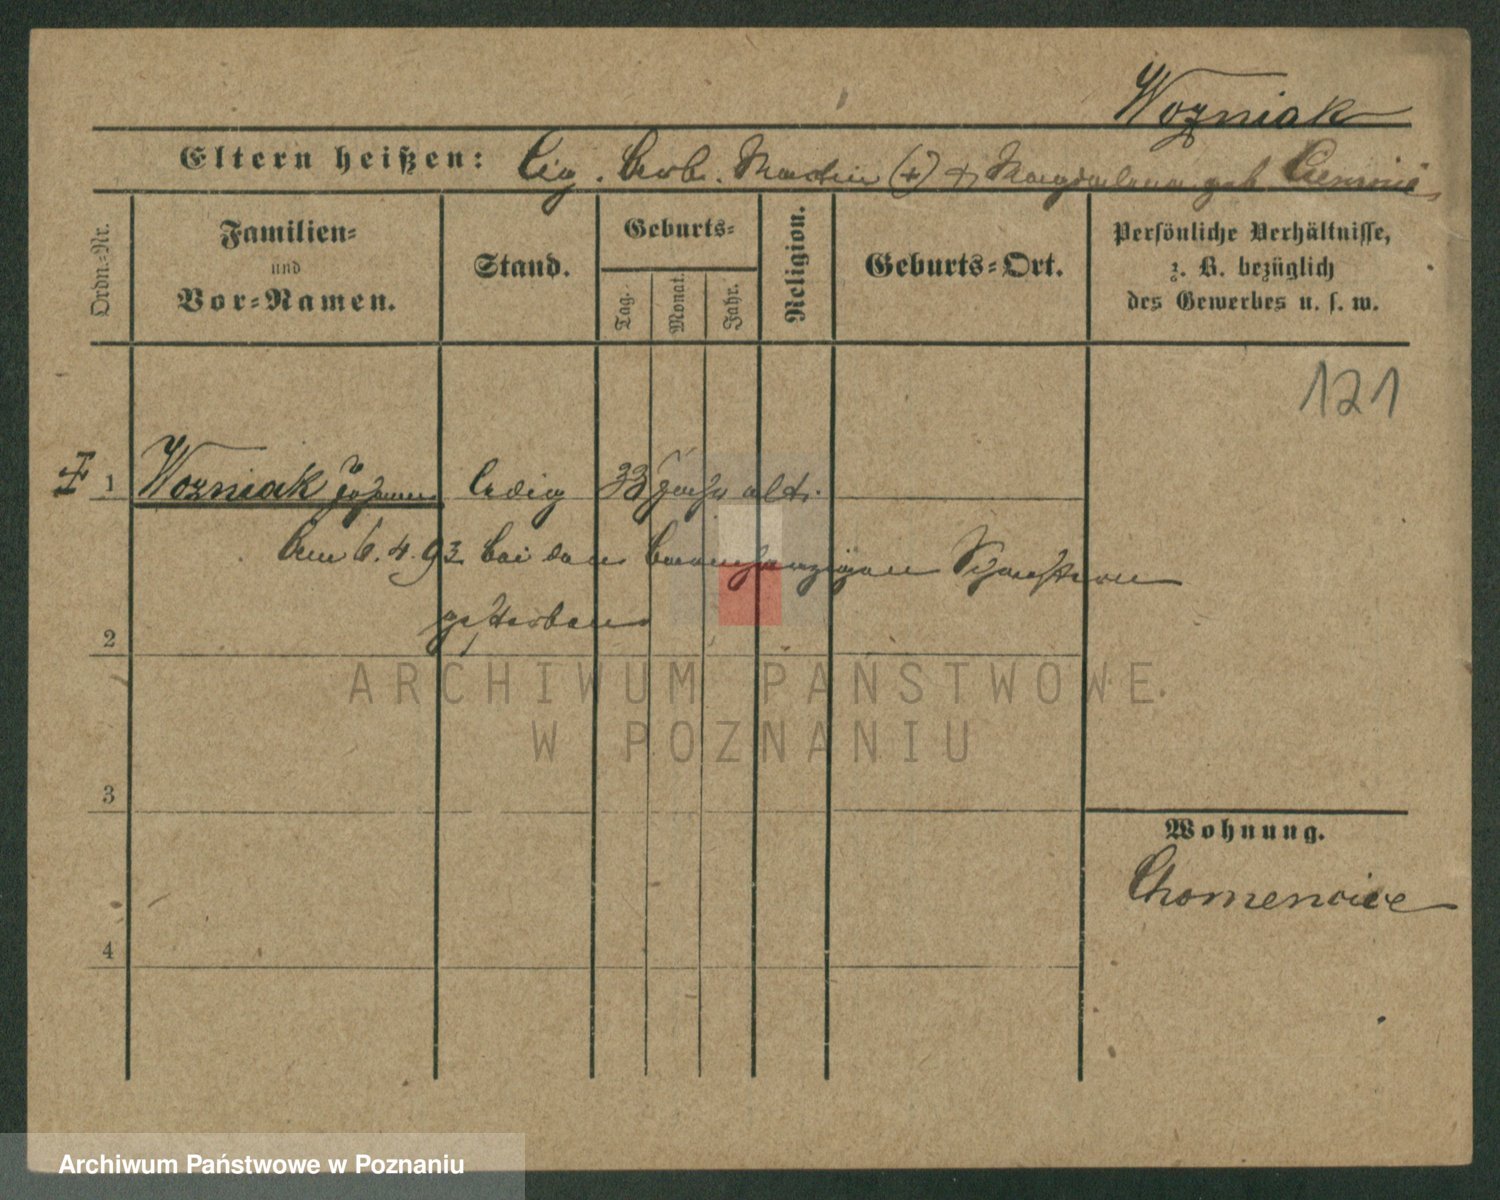 Wozniak
Eltern heißen: Cig. Arb. Martin (+) + Magdalena geb.
Ordn.-Nr.
Familien-
und
Vor-Namen.
Stand.
Geburts-
Tag.
Monat.
Jahr.
Religion.
Geburts-Ort.
Persönliche Verhältnisse,
z. B. bezüglich
des Gewerbes u. s. w.
121
1 Wozniak Johann ledig 33 Jahr alt.
Am 6.4.93 bei den barmherzigen Schwestern
gestorben
2
3
4
Wohnung.
Chomencice
ARCHIWUM PAŃSTWOWE
W POZNANIU
Archiwum Państwowe w Poznaniu